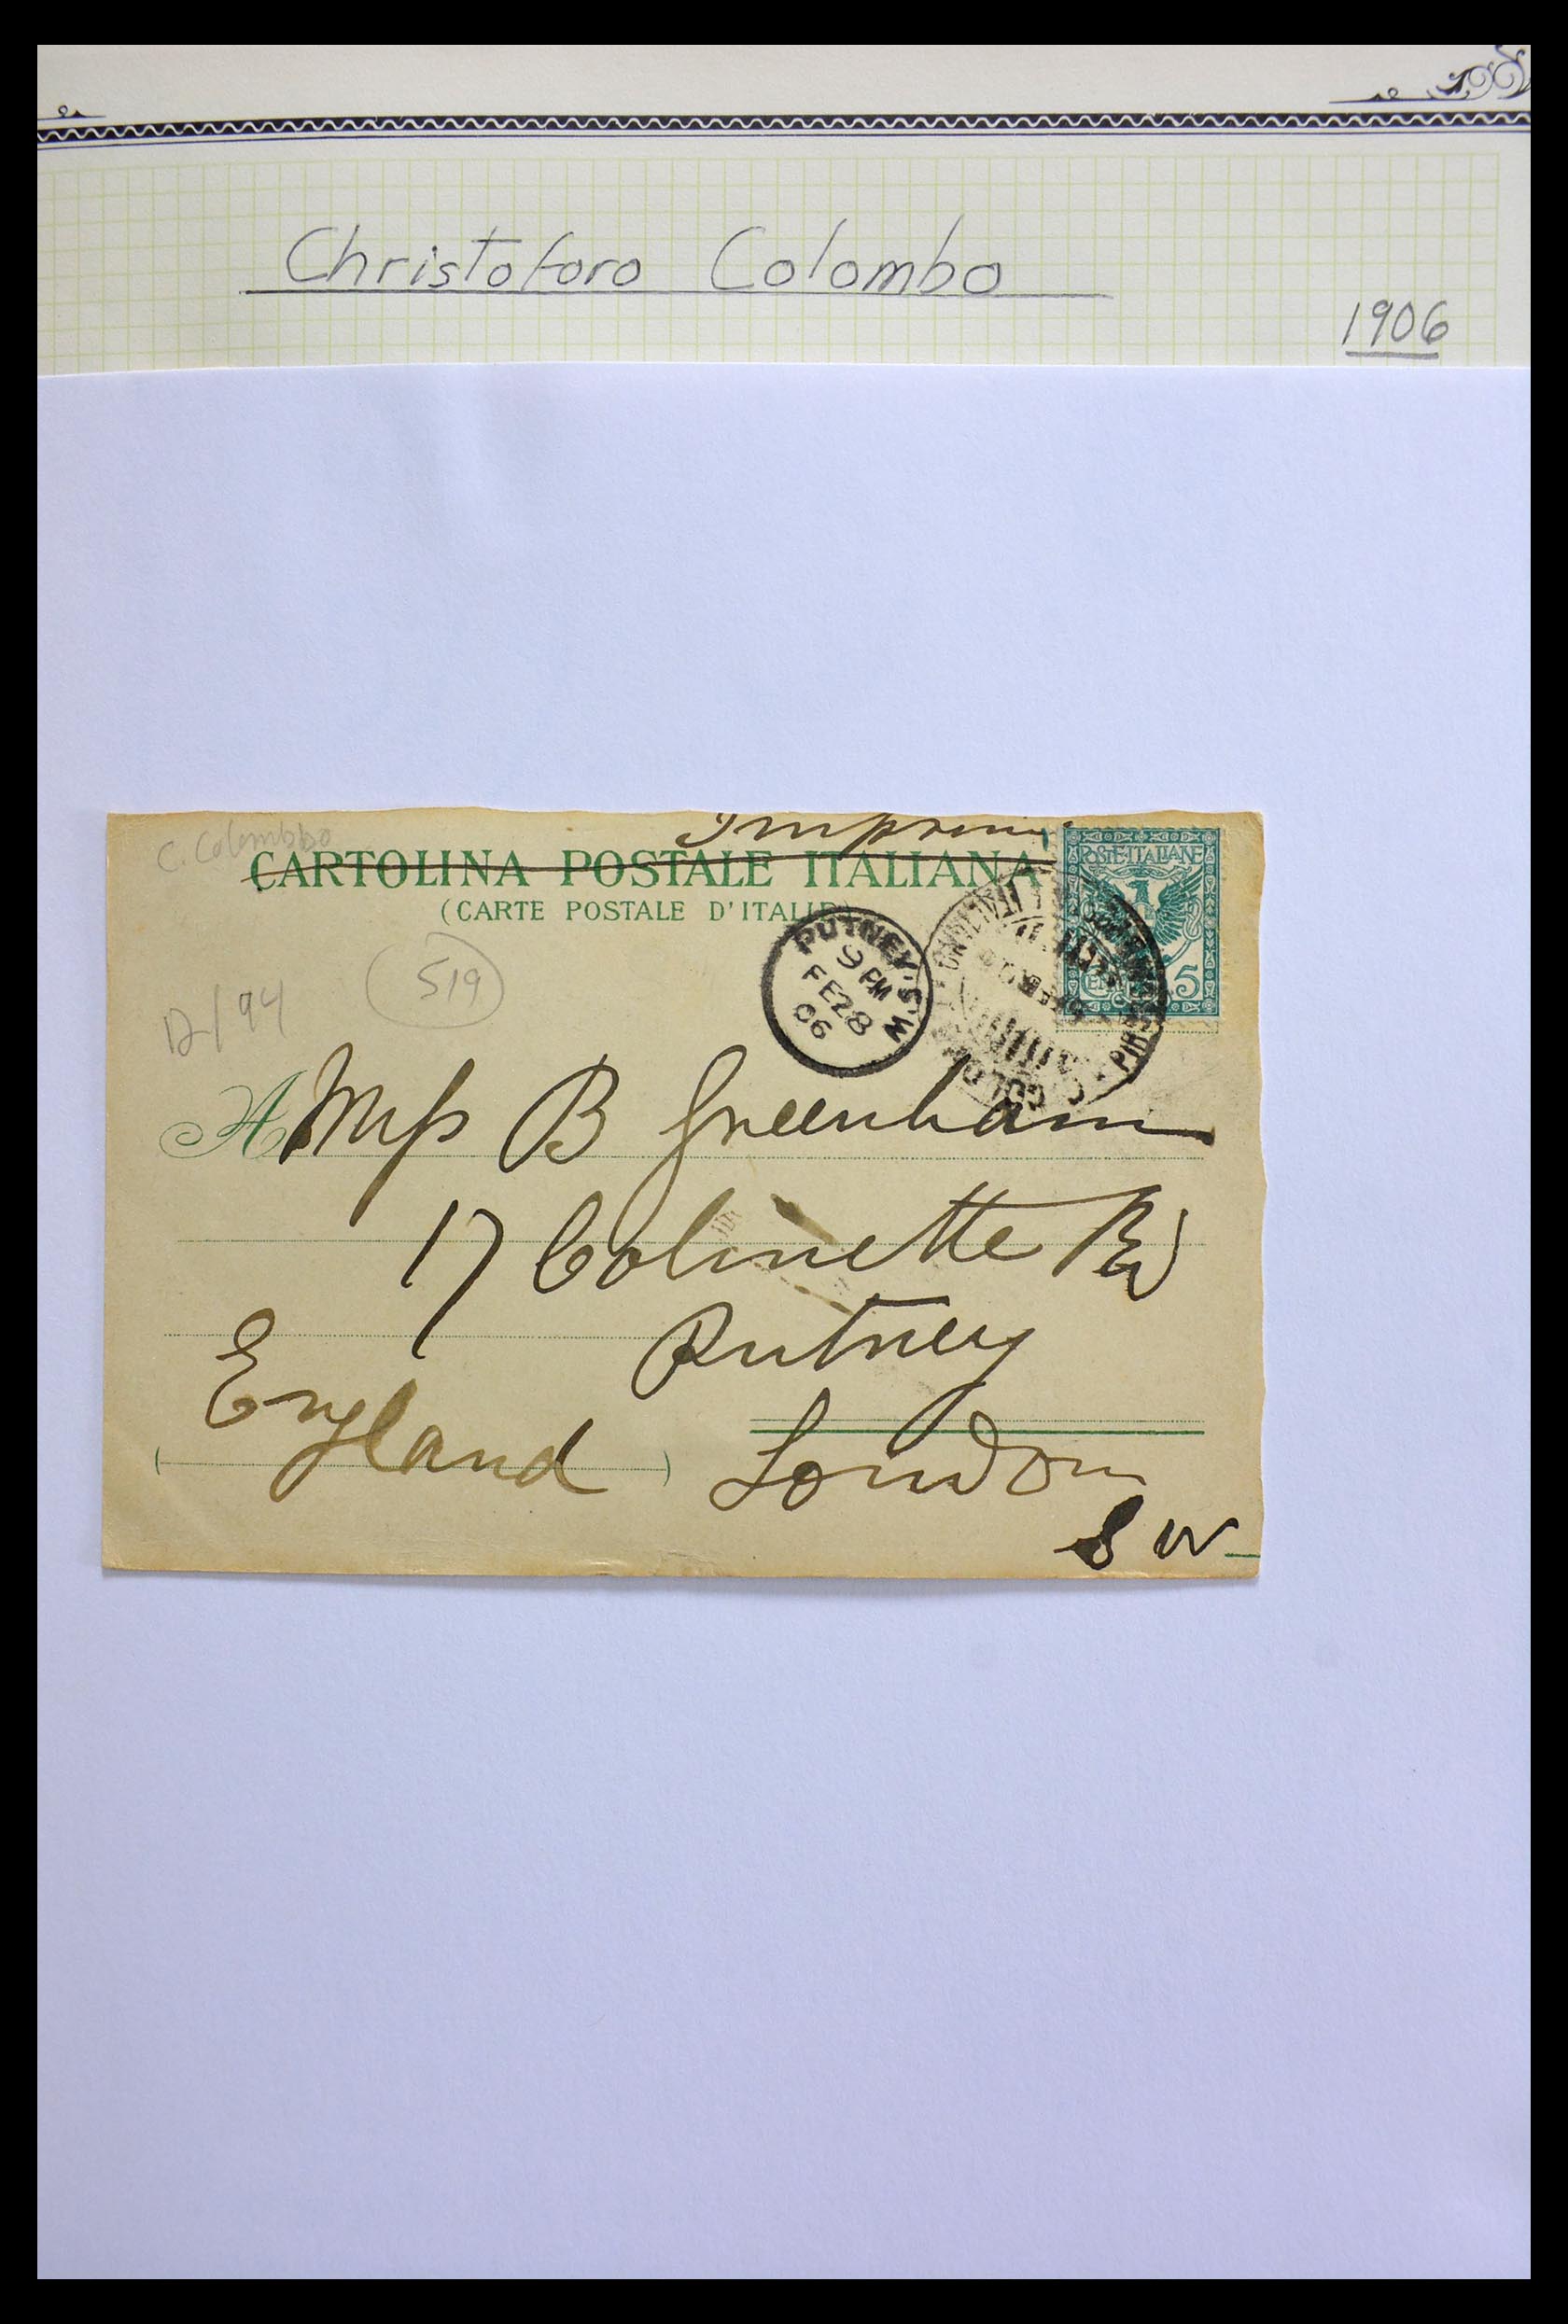 Christoforo Colombo
1906
C. Colombo
CARTOLINA POSTALE ITALIANA
(CARTE POSTALE D'ITALIE)
POSTE ITALIANE
5
PUTNEY. S.W.
9 PM
FE 28
06
519
12/94
A Miss B Greenham
17 Colinette Rd
Putney
England
London
S W